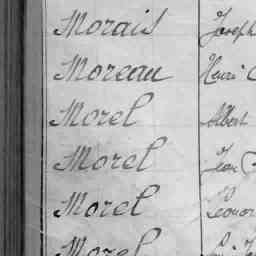 Morais Joseph
Moreau Henri
Morel Albert
Morel Jean
Morel Léonor
Morel